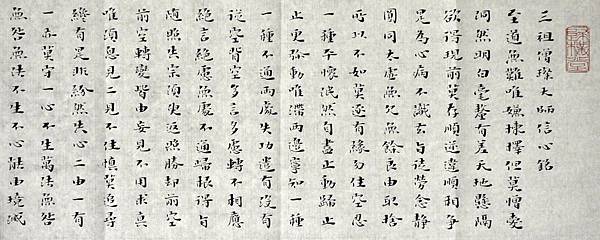 三祖僧璨大師信心銘
至道無難唯嫌揀擇但莫憎愛
洞然明白毫釐有差天地懸隔
欲得現前莫存順逆違順相爭
是為心病不識玄旨徒勞念靜
圓同太虛無欠無餘良由取捨
所以不如莫逐有緣勿住空忍
一種平懷泯然自盡止動歸止
止更彌動唯滯兩邊寧知一種
一種不通兩處失功遣有沒有
從空背空多言多慮轉不相應
絕言絕慮無處不通歸根得旨
隨照失宗須臾返照勝却前空
前空轉變皆由妄見不用求真
唯須息見二見不住慎莫追尋
纔有是非紛然失心二由一有
一亦莫守一心不生萬法無咎
無咎無法不生不心能由境滅